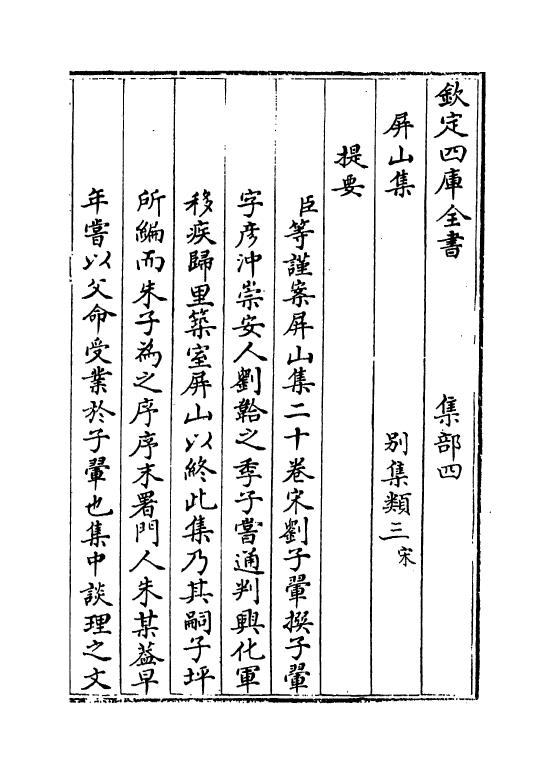 欽定四庫全書　集部四
屏山集　别集類三宋
提要
臣等謹案屏山集二十卷宋劉子翬撰子翬
字彦沖崇安人劉韐之季子嘗通判興化軍
移疾歸里築室屏山以終此集乃其嗣子坪
所編而朱子為之序序末署門人朱某葢早
年嘗以父命受業於子翬也集中談理之文